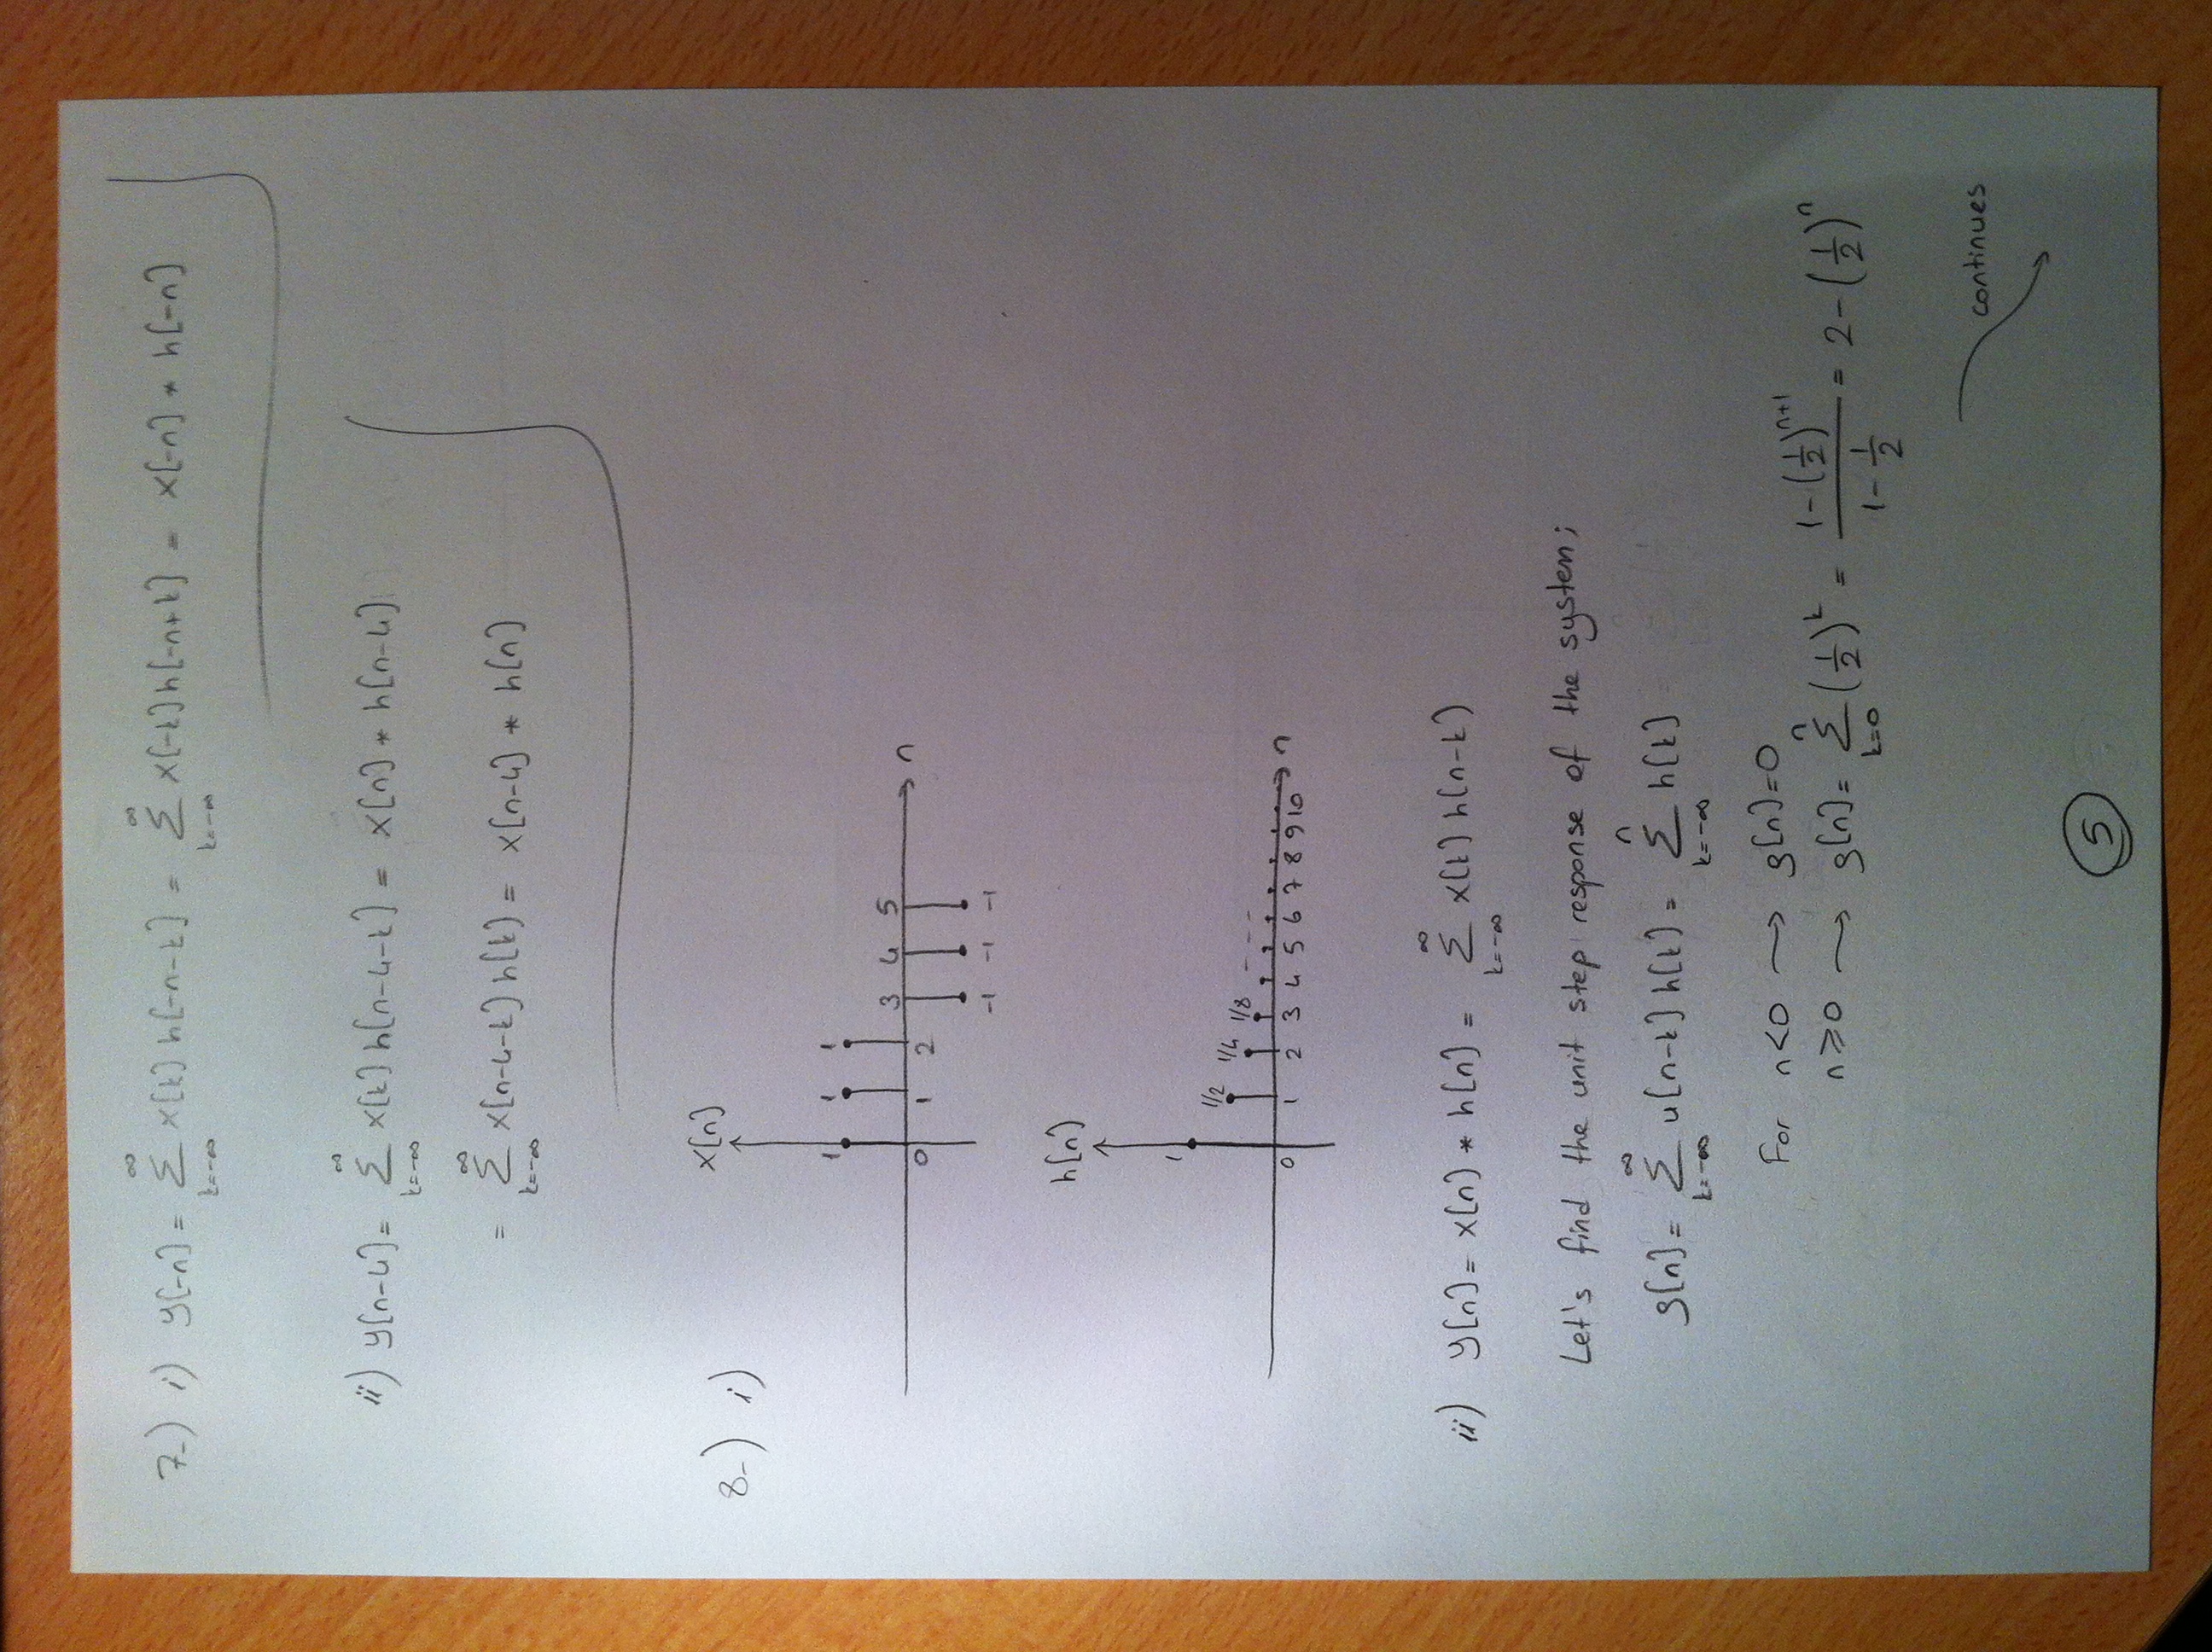 7-) i) y[-n] = ∞ Σ k=-∞ x[k] h[-n-k] = ∞ Σ k=-∞ x[-k] h[-n+k] = x[-n] * h[-n]
ii) y[n-4] = ∞ Σ k=-∞ x[k] h[n-4-k] = x[n] * h[n-4]
= ∞ Σ k=-∞ x[n-4-k] h[k] = x[n-4] * h[n]
8-) i) x[n]
1 1 1
3 4 5
0 1 2 n
-1 -1 -1
h[n]
1
1/2 1/4 1/8 - - -
0 1 2 3 4 5 6 7 8 9 10 n
ii) y[n] = x[n] * h[n] = ∞ Σ k=-∞ x[k] h[n-k]
Let's find the unit step response of the system;
g[n] = ∞ Σ k=-∞ u[n-k] h[k] = n Σ k=-∞ h[k]
For n<0 → g[n]=0
n≥0 → g[n] = n Σ k=0 (1/2)^k = (1-(1/2)^(n+1))/(1-1/2) = 2-(1/2)^n
continues
5